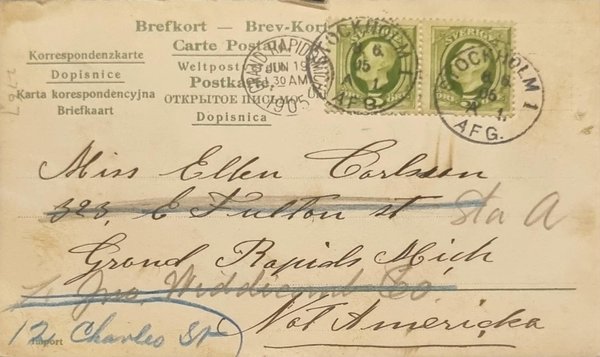 Brefkort — Brev-Kort
Carte Postale
Weltpost
Postkarte
ОТКРЫТОЕ ПИСЬМО
Dopisnica
Korrespondenzkarte
Dopisnice
Karta korespondencyjna
Briefkaart
GRAND RAPIDS
JUN 19
30 AM
1905
STOCKHOLM 1
6
05
AFG.
SVERIGE
STOCKHOLM 1
05
AFG.
Miss Ellen Carlson
323, E Fulton st
Sta A
Grand Rapids Mich
Jno. Widdicomb Co
12 Charles St
Not Amerika